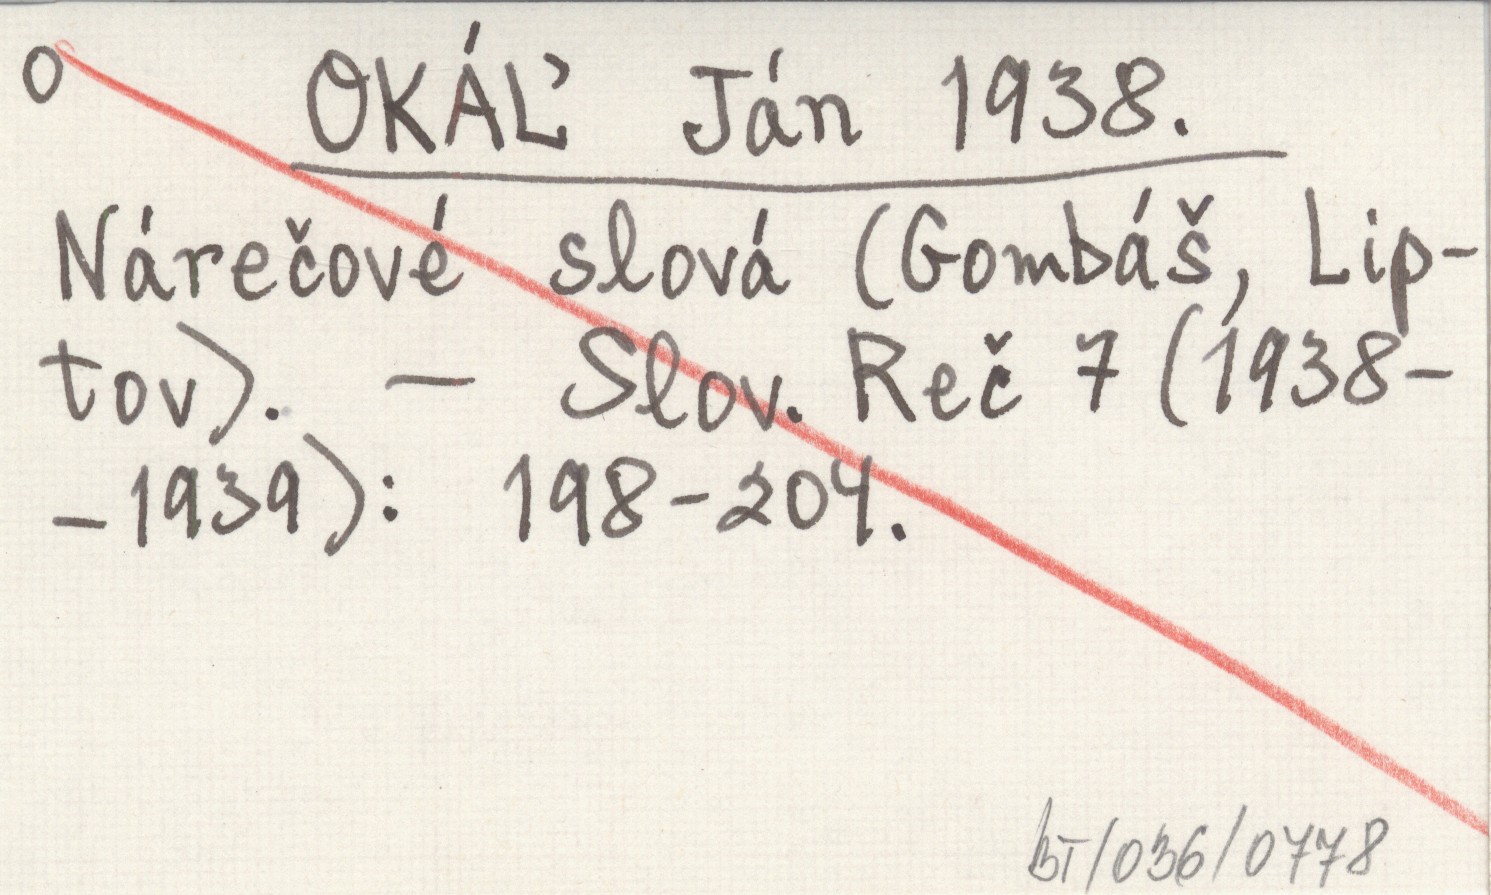 O
OKÁĽ Ján 1938.
Nárečové slová (Gombáš, Lip-
tov). — Slov. Reč 7 (1938-
-1939): 198-204.
BT/036/0778